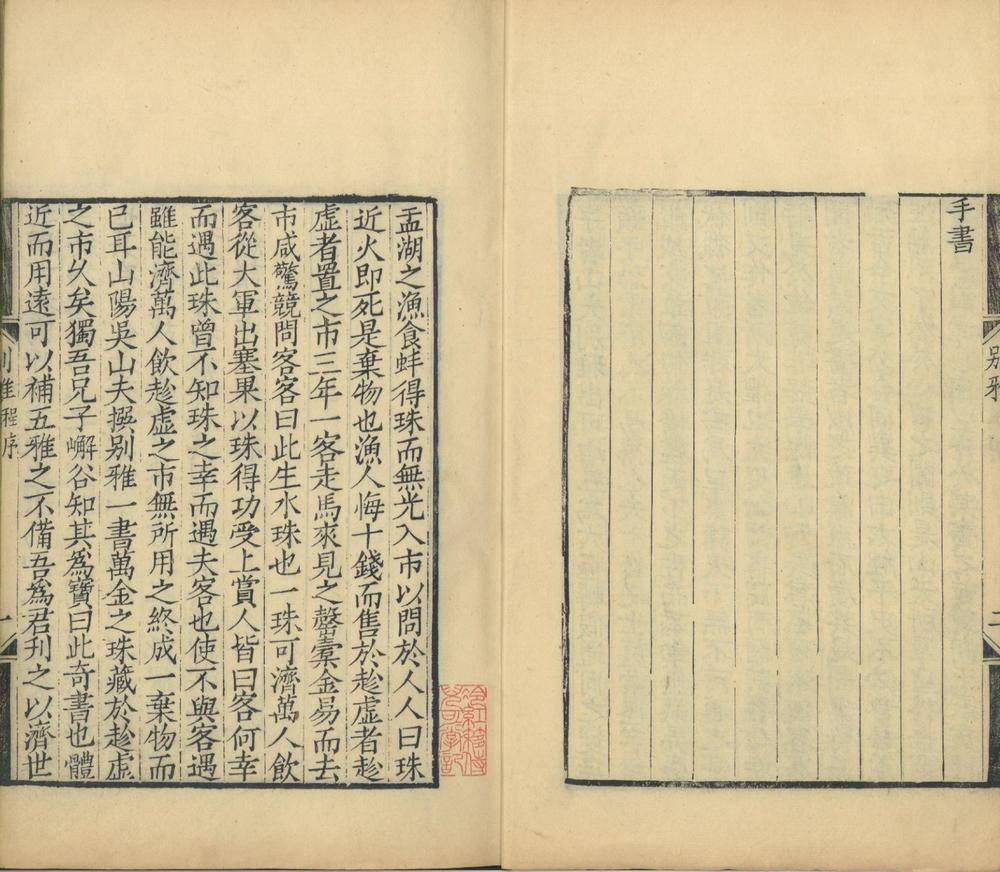 手書
別雅
二
孟湖之漁食蚌得珠而無光入市以問於人人曰珠
近火即死是棄物也漁人悔十錢而售於趁虛者趁
虛者置之市三年一客走馬來見之罄橐金易而去
市咸驚競問客客曰此生水珠也一珠可濟萬人飲
客從大軍出塞果以珠得功受上賞人皆曰客何幸
而遇此珠曾不知珠之幸而遇夫客也使不與客遇
雖能濟萬人飲趁虛之市無所用之終成一棄物而
已耳山陽吳山夫撰別雅一書萬金之珠藏於趁虛
之市久矣獨吾兄子嶰谷知其為寶曰此奇書也體
近而用遠可以補五雅之不備吾為君刋之以濟世
別雅程序
一